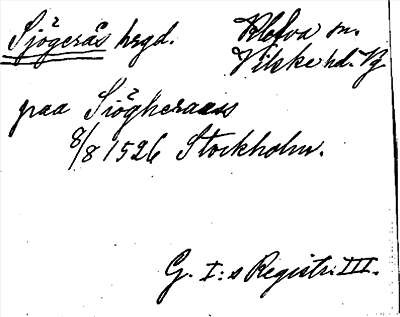 Sjögerås hrgd. Kleva sn.
Vilske hd. Vg
paa Siögheraas
8/8 1526 Stockholm.
G. I:s Registr. III.